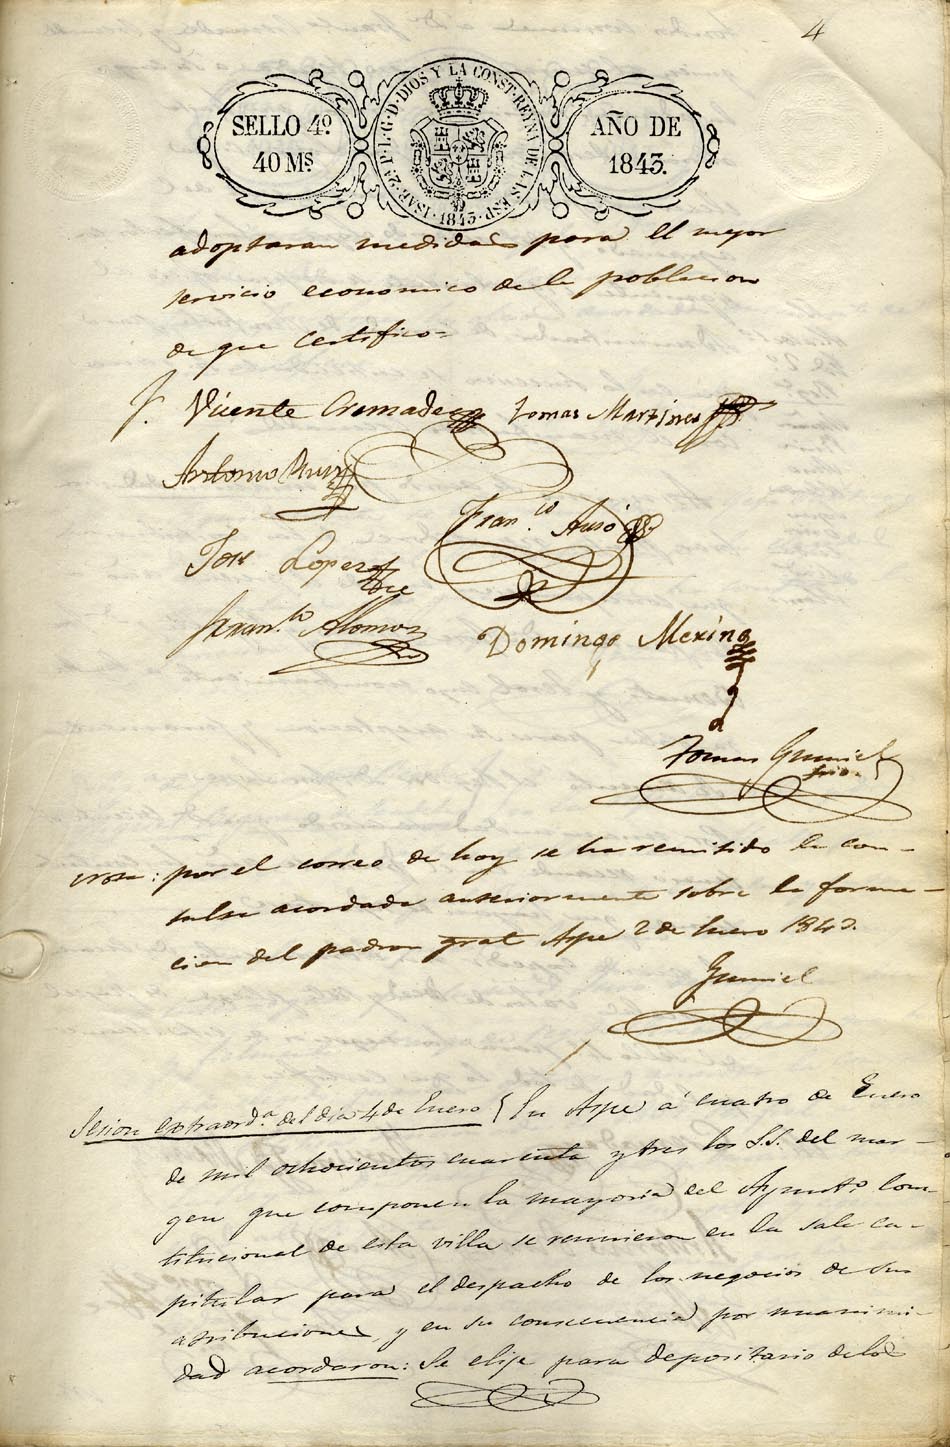 4
SELLO 4º
40 Ms.
ISAB. 2ª P. L. G. D. DIOS Y LA CONST. REYNA DE LAS ESP.
1843
AÑO DE
1843.
adoptaran medidas para el mejor
servicio economico de la poblacion
de que certifico=
Vicente Cremades Tomas Martines
Antonio Ruiz
Fran.co Ausó
Jose Lopez
Fran.co Alonso
Domingo Merino
Tomas Gumiel
Srio.
Nota: por el correo de hoy se ha remitido la con-
sulta acordada anteriormente sobre la forma-
cion del padron gral Aspe 2 de Enero 1843.
Gumiel
Sesion extraord.a del dia 4 de Enero { En Aspe á cuatro de Enero
de mil ochocientos cuarenta y tres los S.S. del mar-
gen que componen la mayoria del Ayunt.o Cons-
titucional de esta villa se reunieron en la sala ca-
pitular para el despacho de los negocios de sus
atribuciones, y en su consecuencia por unanimi-
dad acordaron: Se elije para depositario de los